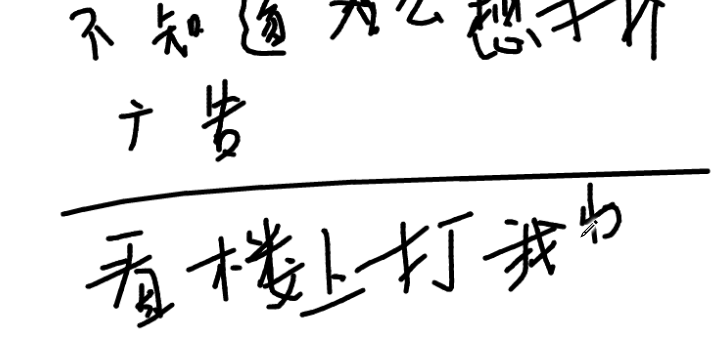 不知道为么想打
广告
看楼上打我也